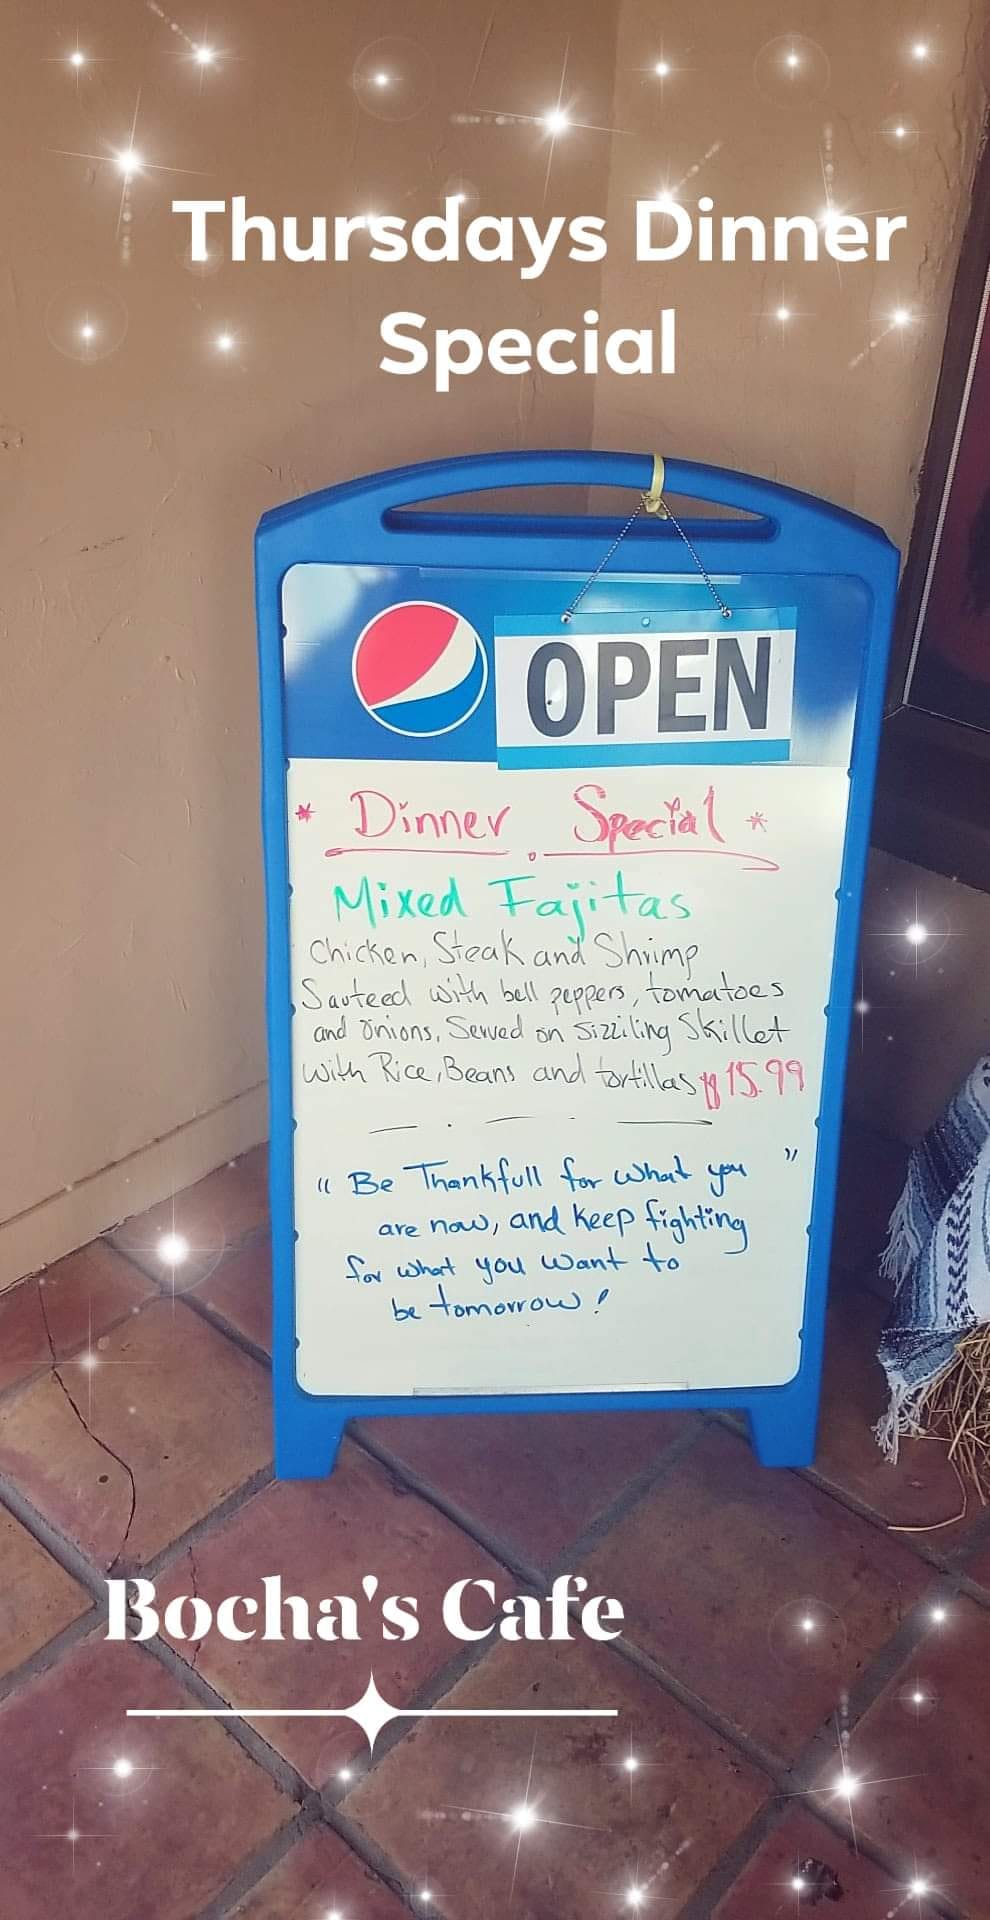 Thursdays Dinner
Special
OPEN
* Dinner Special *
Mixed Fajitas
Chicken, Steak and Shrimp
Sauteed with bell peppers, tomatoes
and onions, Served on Sizziling Skillet
with Rice, Beans and tortillas $15.99
"Be Thankfull for what you"
are now, and keep fighting
for what you want to
be tomorrow!
Bocha's Cafe